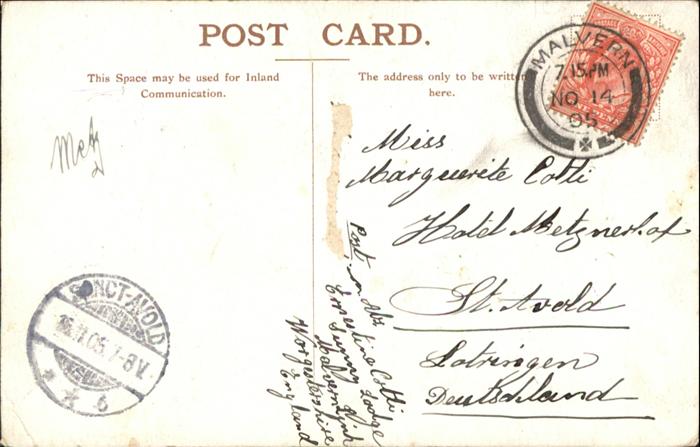 POST CARD.
This Space may be used for Inland
Communication.
The address only to be written
here.
MALVERN
7.15 PM
NO 14
05
Metz
Miss
Marguerite Cotti
Hotel Metznerhof
St. Avold
Lotringen
Deutschland
Ernestine Cotti
Sunny Lodge
Malvern Link
Worgestershire
England
SANCT-AVOLD
16.11.05.7-8V.
* * b